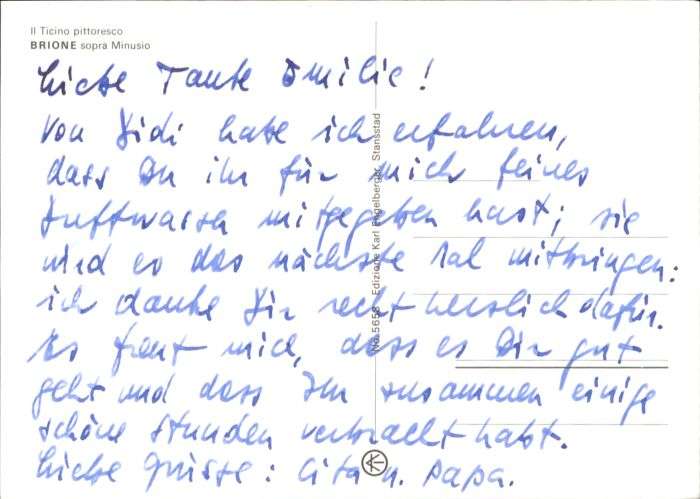 Il Ticino pittoresco
BRIONE sopra Minusio
Liebe Tante Emilie!
Von Didi habe ich erfahren,
dass Du ihr für mich feines
Duftwasser mitgegeben hast; sie
wird es das nächste Mal mitbringen:
ich danke Dir recht herzlich dafür.
Es freut mich, dass es Dir gut
geht und dass Ihr zusammen einige
schöne Stunden verbracht habt.
Liebe Grüsse: Cita u. Papa.
No. 5658 Edizione Karl Engelberger, Stansstad